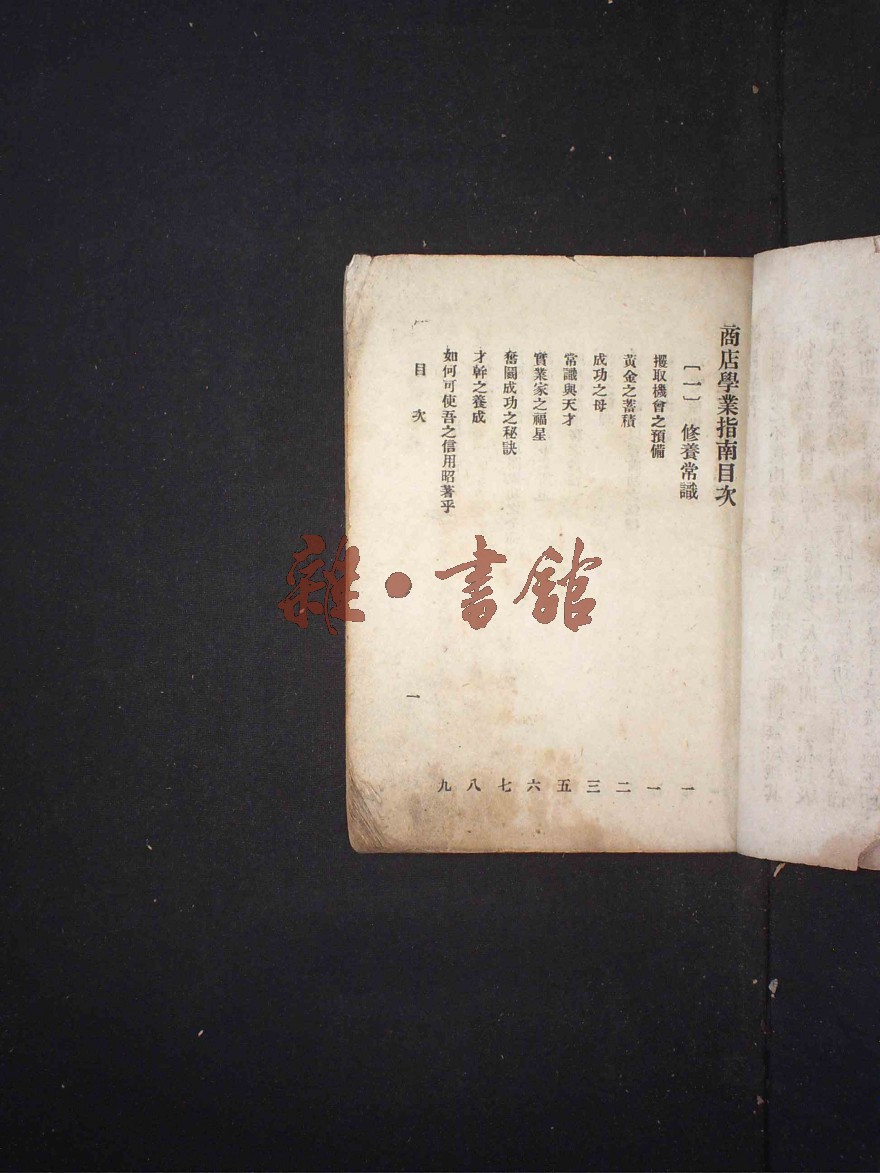 商店學業指南目次
〔一〕 修養常識 一
攫取機會之預備 一
黃金之蓄積 二
成功之母 三
常識與天才 五
實業家之福星 六
奮鬭成功之秘訣 七
才幹之養成 八
如何可使吾之信用昭著乎 九
目次 一
雜·書館